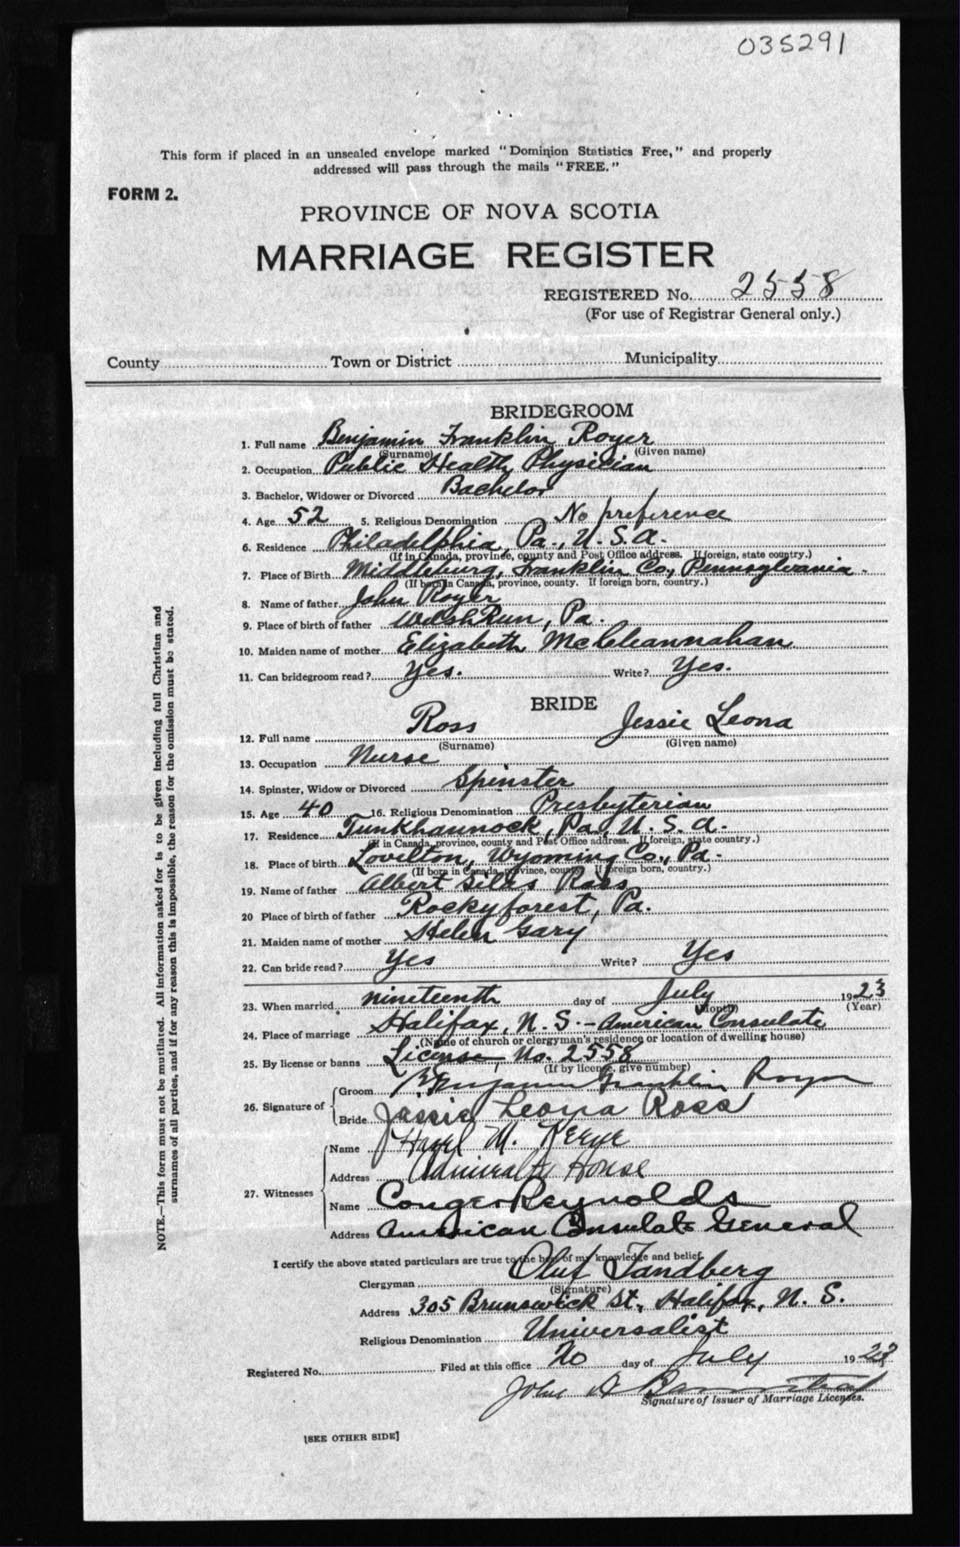 035291
This form if placed in an unsealed envelope marked "Dominion Statistics Free," and properly
addressed will pass through the mails "FREE."
FORM 2.
PROVINCE OF NOVA SCOTIA
MARRIAGE REGISTER
REGISTERED No. 2558
(For use of Registrar General only.)
County Town or District Municipality
BRIDEGROOM
1. Full name Benjamin Franklin Royer
(Surname) (Given name)
2. Occupation Public Health Physician
3. Bachelor, Widower or Divorced Bachelor
4. Age 52 5. Religious Denomination No preference
6. Residence Philadelphia, Pa., U.S.A.
(If in Canada, province, county and Post Office address. If foreign, state country.)
7. Place of Birth Middleburg, Franklin Co., Pennsylvania.
(If born in Canada, province, county. If foreign born, country.)
8. Name of father John Royer
9. Place of birth of father Welsh Run, Pa.
10. Maiden name of mother Elizabeth McCleannahan
11. Can bridegroom read? Yes. Write? Yes.
BRIDE
12. Full name Ross Jessie Leona
(Surname) (Given name)
13. Occupation Nurse
14. Spinster, Widow or Divorced Spinster
15. Age 40 16. Religious Denomination Presbyterian
17. Residence Tunkhannock, Pa., U.S.A.
(If in Canada, province, county and Post Office address. If foreign, state country.)
18. Place of birth Lovelton, Wyoming Co., Pa.
(If born in Canada, province, county. If foreign born, country.)
19. Name of father Albert Silas Ross
20 Place of birth of father Rockyforest, Pa.
21. Maiden name of mother Helen Gary
22. Can bride read? Yes Write? Yes
23. When married nineteenth day of July 1923
(Month) (Year)
24. Place of marriage Halifax, N.S. - American Consulate
(Name of church or clergyman's residence or location of dwelling house)
25. By license or banns License, No. 2558
(If by license, give number)
26. Signature of { Groom Benjamin Franklin Royer
Bride Jessie Leona Ross
27. Witnesses { Name Hazel M.
Address Admiralty House
Name Conger Reynolds
Address American Consulate General
I certify the above stated particulars are true to the best of my knowledge and belief.
Clergyman Oluf Tandberg
(Signature)
Address 305 Brunswick St., Halifax, N.S.
Religious Denomination Universalist
Registered No. Filed at this office 20 day of July 1923
John A
Signature of Issuer of Marriage Licenses.
[SEE OTHER SIDE]
NOTE.—This form must not be mutilated. All information asked for is to be given including full Christian and
surnames of all parties, and if for any reason this is impossible, the reason for the omission must be stated.